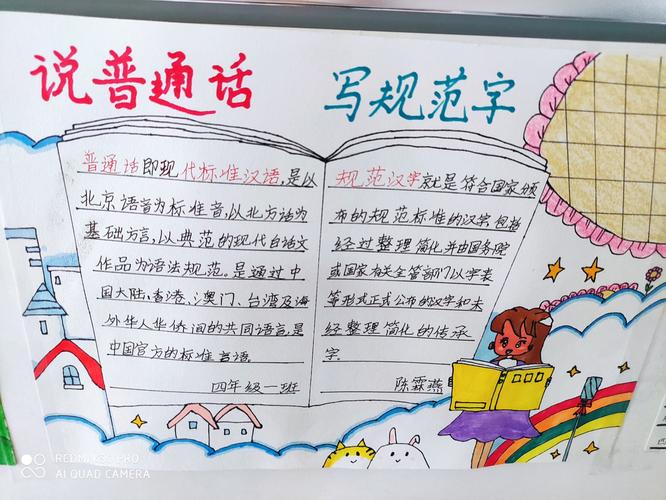 说普通话
写规范字
普通话即现代标准汉语,是以
北京语音为标准音,以北方话为
基础方言,以典范的现代白话文
作品为语法规范。是通过中
国大陆、香港、澳门、台湾及海
外华人华侨间的共同语言,是
中国官方的标准言语.
四年级一班
规范汉字就是符合国家颁
布的规范标准的汉字,包括
经过整理简化并由国务院
或国家有关主管部门以字表
等形式正式公布的汉字和未
经整理简化的传承
字.
陈霖燕
REDMI
AI QUAD CAMERA